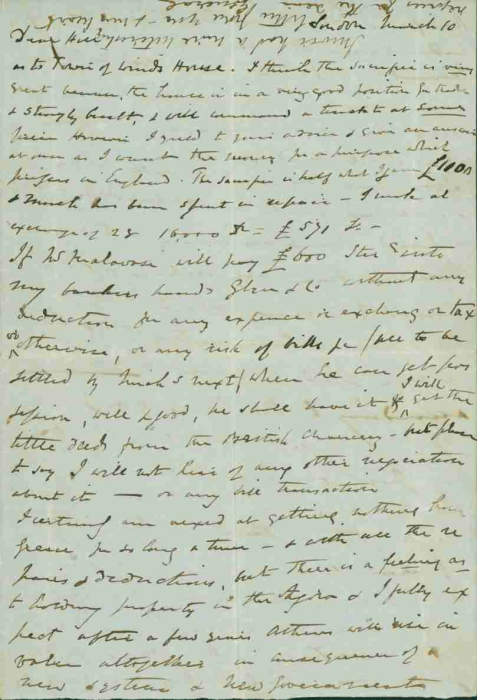 London March 10
Dear Hill
as to Tower of Winds House. I think the sacrifice is very
great because the house is in a very good position for trade
& strongly built, & will command a tenant at some
price. However I yield to your advice & give an answer
at once as I want the money for a purpose which
in England. The sacrifice is half what I gave £1100
& much has been spent in repairs — I make at
exchange of 28 16,000 Dr = £571 St. —
If Mr will pay £600 Ster into
my bankers hands Glyn & Co without any
deduction for any expence in exchange or tax
or otherwise, or any risk of bills &c (all to be
settled by March 5 next) when he can get pos
session, will & good, he shall have it & I will get the
title deeds from the British Chancery — but please
to say I will not hear of any other negociation
about it — or any bill transaction
I certainly am vexed at getting nothing from
Greece for so long a time — & with all the re
pairs & deductions, but there is a feeling as
to holding property in the Agora & I fully ex
pect after a few years Athens will rise in
value altogether in consequence of a
new system & new Government